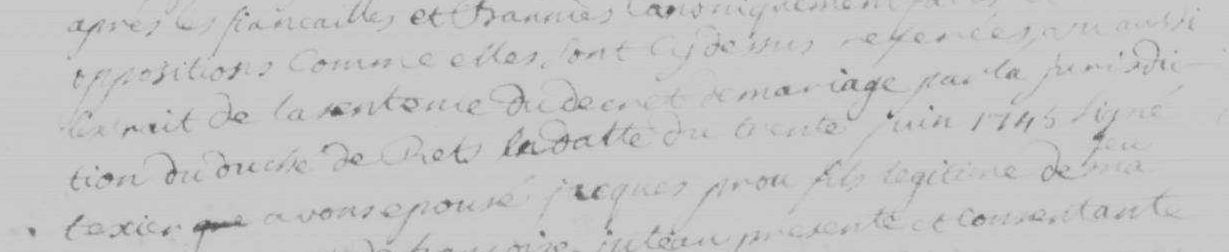 après les fiançailles et bannies Canoniquement
oppositions Comme elles sont Cy dessus referées, vu aussi
l'extrait de la sentence du decret de mariage par la jurisdic-
tion du duché de Rets en datte du trente juin 1745 Signé
feu
texier avons epousé jacques prou fils legitime de
presente et Consentante